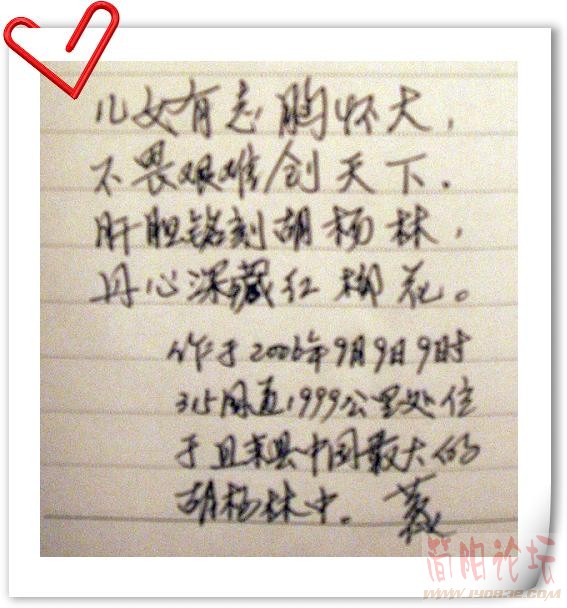 儿女有志胸怀大，
不畏艰难创天下．
肝胆铭刻胡杨林，
丹心深藏红柳花。
作于2006年9月9日9时
315国道1999公里处位
于且末县中国最大的
胡杨林中。
简阳论坛